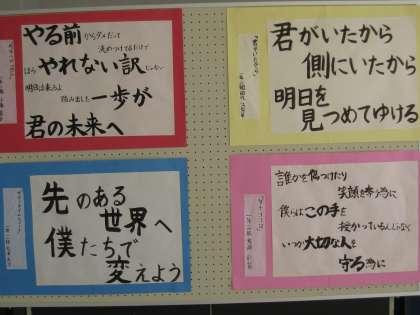 やる前からダメだって
決めつけてるだけで
ほら やれない訳じゃない
明日は来るよ
踏み出した一歩が
君の未来へ
君がいたから
側にいたから
明日を
見つめてゆける
先のある
世界へ
僕たちで
変えよう
誰かを傷つけたり
笑顔を奪う為に
僕らはこの手を
授かっているんじゃなくて
いつか大切な人を
守る為に